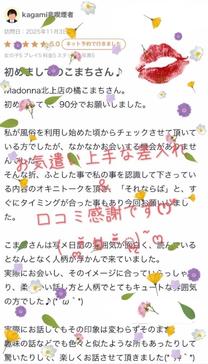 kagami非喫煙者
訪問日:2025年11月3日
5.0 ネット予約で行きました
女の子5 プレイ5 料金5 スタッフ5 写真5
初めましてのこまちさん♪
Madonna北上店の橘こまちさん。
初めましてで、90分でお願いしました。
私が風俗を利用し始めた頃からチェックさせて頂いて
いる方でしたが、なかなかお会いする機会がありませ
そんな折、ふとした事で私の事を認識して下さってい
る内容のオキニトークを頂き、「それならば」と、す
ぐにタイミングが合った事もあり今回お願いしまし
お気遣い上手な差入れ
&
口コミ感謝です
こまちさんは写メ日記の雰囲気が面白く、読んでいる
となんとなく人柄が浮かんで来ていました。
実際にお会いし、そのイメージに合っていらっしゃ
り、柔らかい話し方と人柄でとてもキュートな雰囲気
の方でした♪(*´▽`*)
実際にお話してもその印象は変わらずそのまま
趣味の話などでも色々と似たような所もあったりして
驚いたりして、楽しくお話させて頂きました(*´▽`*)